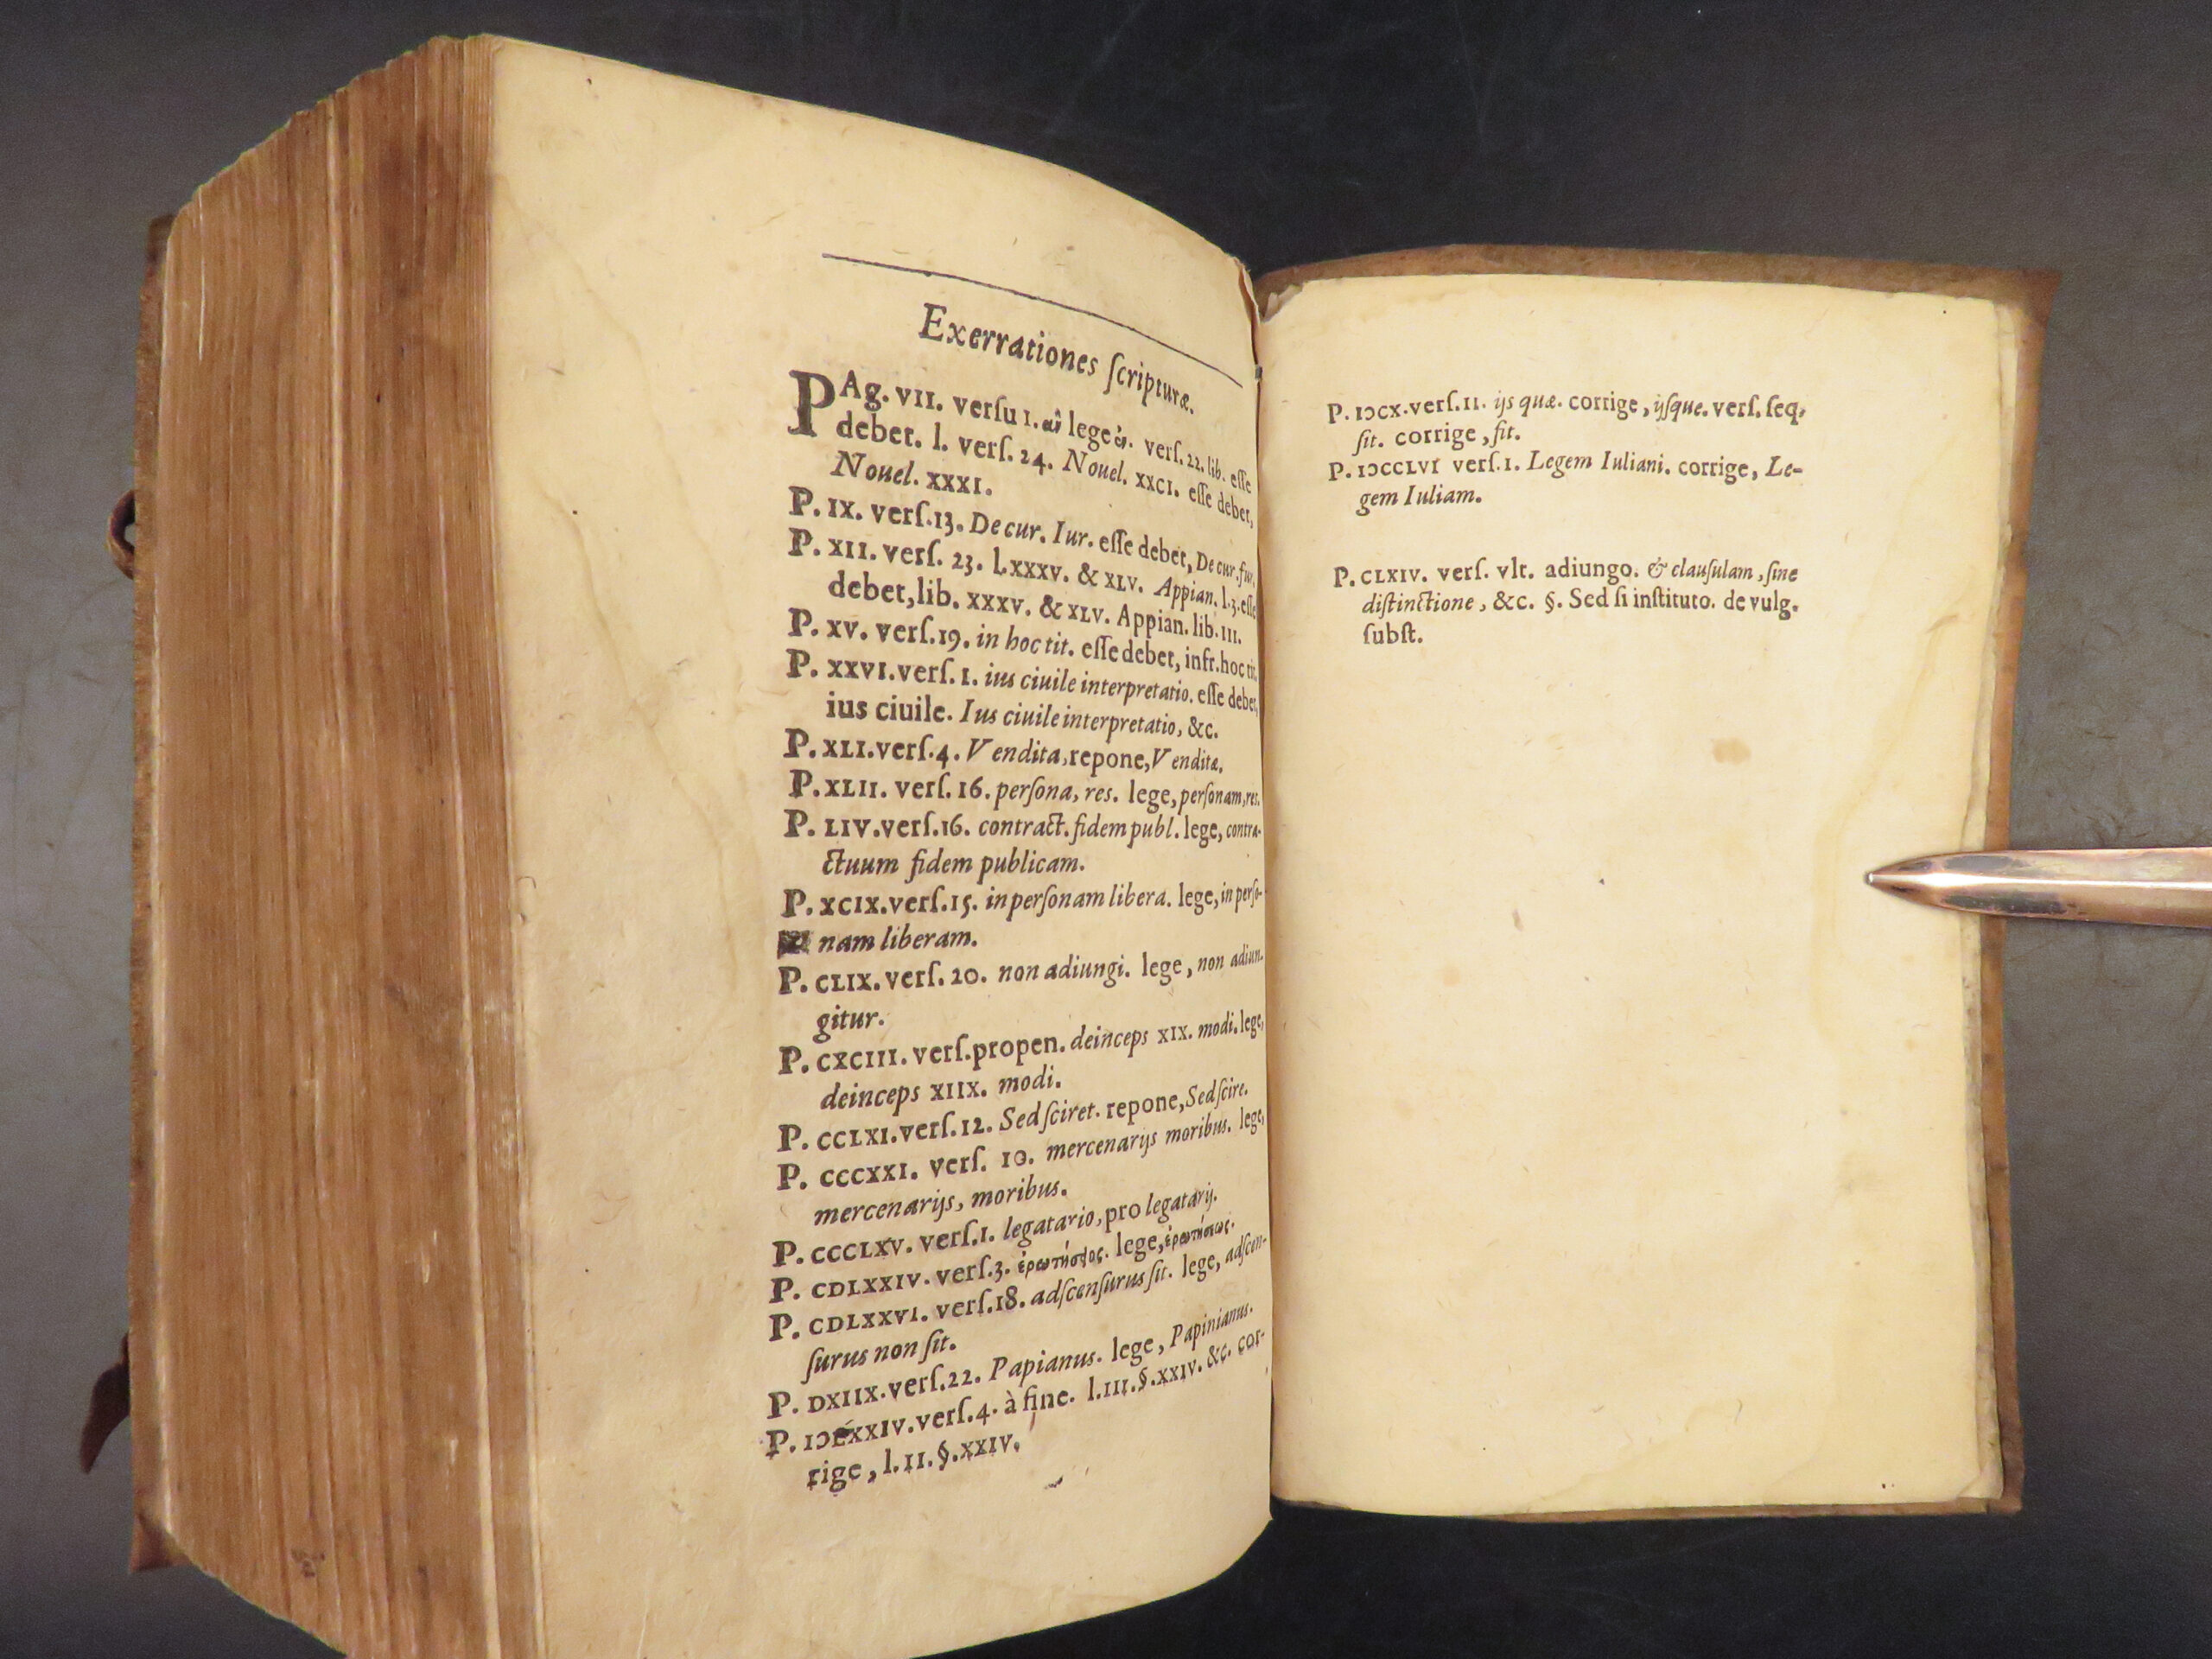 Exerrationes ſcripturæ.
PAg. VII. verſu I. αἱ lege . verſ. 22. lib. eſſe
debet. l. verſ. 24. Nouel. XXCI. eſſe debet,
Nouel. XXXI.
P. IX. verſ. 13. De cur. Iur. eſſe debet, De cur. fur.
P. XII. verſ. 23. l. XXXV. & XLV. Appian. l. 3. eſſe
debet, lib. XXXV. & XLV. Appian. lib. III.
P. XV. verſ. 19. in hoc tit. eſſe debet, infr. hoc tit.
P. XXVI. verſ. I. ius ciuile interpretatio. eſſe debet,
ius ciuile. Ius ciuile interpretatio, &c.
P. XLI. verſ. 4. Vendita, repone, Venditæ.
P. XLII. verſ. 16. perſona, res. lege, perſonam, res.
P. LIV. verſ. 16. contract. fidem publ. lege, contra-
ctuum fidem publicam.
P. XCIX. verſ. 15. in perſonam libera. lege, in perſo-
nam liberam.
P. CLIX. verſ. 20. non adiungi. lege, non adiun-
gitur.
P. CXCIII. verſ. propen. deinceps XIX. modi. lege,
deinceps XIIX. modi.
P. CCLXI. verſ. 12. Sed ſciret. repone, Sed ſcire.
P. CCCXXI. verſ. 10. mercenarijs moribus. lege,
mercenarijs, moribus.
P. CCCLXV. verſ. I. legatario, pro legatarij.
P. CDLXXIV. verſ. 3. lege, ἐρωτήσεως.
P. CDLXXVI. verſ. 18. adſcenſurus ſit. lege, adſcen-
ſurus non ſit.
P. DXIIX. verſ. 22. Papianus. lege, Papinianus.
P. IↃLXXIV. verſ. 4. à fine. l. III. §. XXIV. &c. cor-
rige, l. II. §. XXIV.
P. IↃCX. verſ. II. ijs quæ. corrige, ijſque. verſ. ſeq.
ſit. corrige, ſit.
P. IↃCCLVI verſ. I. Legem Iuliani. corrige, Le-
gem Iuliam.
P. CLXIV. verſ. vlt. adiungo. & clauſulam, ſine
diſtinctione, &c. §. Sed ſi inſtituto. de vulg.
ſubſt.